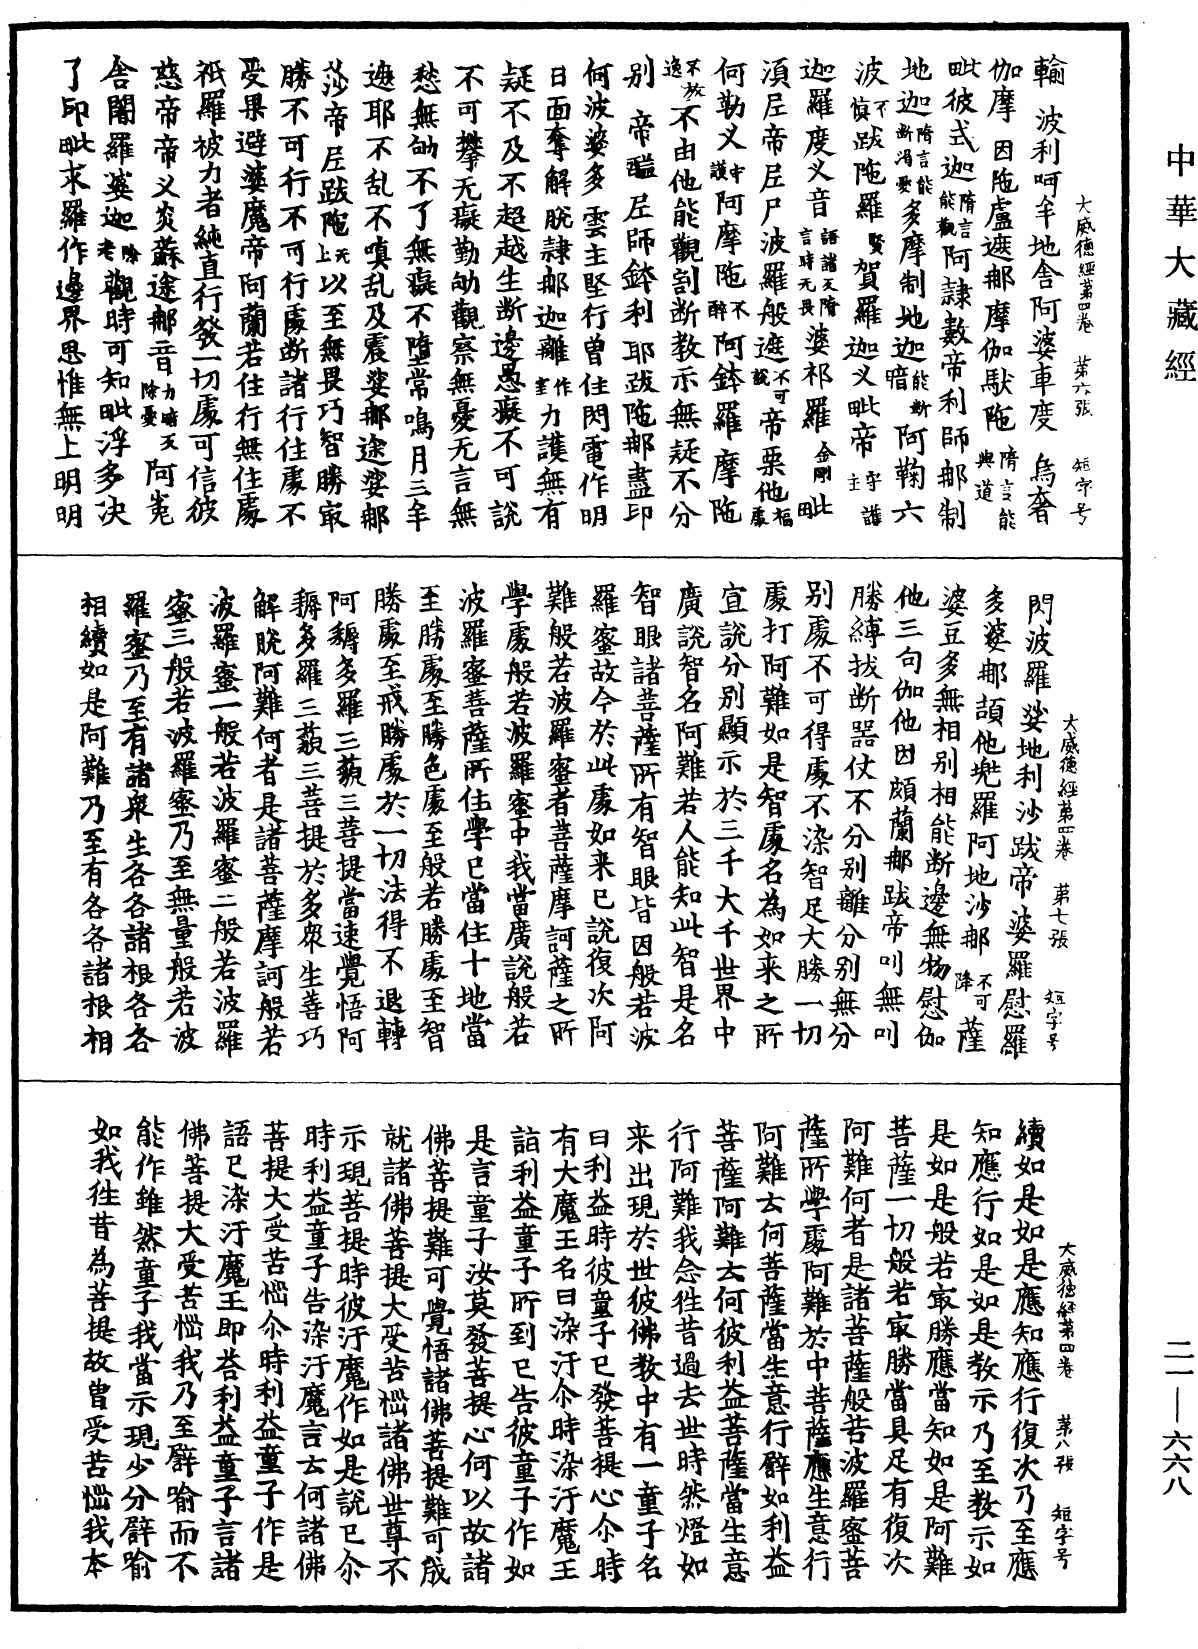 中華大藏經
二一—六六八
大威德經第四卷　第六張　短字号
輸　波利呵牟地舍阿婆車度　烏奢
伽摩　因陁盧遮那摩伽馱陁隋言能與道
毗彼式迦隋言能觀阿隷數帝利師那制
地迦隋言能断渴愛多摩制地迦能断暗阿鞠六
波不慎跋陁羅賢賀羅迦义毗帝守護主
迦羅度义音隋語諸天言時无畏婆祁羅金剛毗
湏𡰱帝𡰱尸波羅般遮不可說帝栗他福處
何勒义中護阿摩陁不醉阿鉢羅摩陁
不放逸不由他能觀割断教示無疑不分
别　帝醯𡰱師鉢利耶跋陁那盡印
何波婆多雲主堅行曾住閃電作明
日面奪解脫隷那迦離作室力護無有
疑不及不超越生断邊愚癡不可說
不可攀无癡勤劬觀察無憂无言無
愁無劬不了無癡不墮常鳴月三牟
遮耶不乱不嗔乱及震娑那途娑那
莎帝𡰱跋陁无上以至無畏巧智勝㝡
勝不可行不可行處断諸行住處不
受果避婆魔帝阿蘭若住行無住處
祇羅被力者純直行發一切處可信彼
慈帝帝义炎蘇途那音力暗天除憂阿嵬
舍闍羅婆迦除老觀時可知毗浮多決
了印毗求羅作邊界思惟無上明明
大威德經第四卷　第七張　短字号
閃波羅娑地利沙跋帝婆羅慰羅
多婆那頡他㝹羅阿地沙那不可降薩
婆豆多無相別相能断邊無物慰伽
他三句伽他因頗蘭那跋帝叫無叫
勝縛拔断器仗不分别離分别無分
别處不可得處不染智足大勝一切
處打阿難如是智處名為如来之所
宣說分别顯示於三千大千世界中
廣說智名阿難若人能知此智是名
智眼諸菩薩所有智眼皆因般若波
羅蜜故今於此處如来已說復次阿
難般若波羅蜜者菩薩摩訶薩之所
學處般若波羅蜜中我當廣說般若
波羅蜜菩薩所住學已當住十地當
至勝處至勝色處至般若勝處至智
勝處至戒勝處於一切法得不退轉
阿耨多羅三藐三菩提當速覺悟阿
耨多羅三藐三菩提於多衆生善巧
解脫阿難何者是諸菩薩摩訶般若
波羅蜜一般若波羅蜜二般若波羅
蜜三般若波羅蜜乃至無量般若波
羅蜜乃至有諸衆生各各諸根各各
相續如是阿難乃至有各各諸根相
大威德經第四卷　第八張　短字号
續如是如是應知應行復次乃至應
知應行如是如是教示乃至教示如
是如是般若㝡勝應當知如是阿難
菩薩一切般若㝡勝當具足有復次
阿難何者是諸菩薩般若波羅蜜菩
薩所學處阿難於中菩薩應生意行
阿難去何菩薩當生意行譬如利益
菩薩阿難去何彼利益菩薩當生意
行阿難我念往昔過去世時然燈如
来出現於世彼佛教中有一童子名
曰利益時彼童子已發菩提心尒時
有大魔王名曰染汙尒時染汙魔王
詣利益童子所到已告彼童子作如
是言童子汝莫發菩提心何以故諸
佛菩提難可覺悟諸佛菩提難可成
就諸佛菩提大受苦惱諸佛世尊不
示現菩提時彼汙魔作如是說已尒
時利益童子告染汙魔言去何諸佛
菩提大受苦惱尒時利益童子作是
語已染汙魔王即荅利益童子言諸
佛菩提大受苦惱我乃至譬喻而不
能作雖然童子我當示現少分譬喻
如我往昔為菩提故曾受苦惱我本